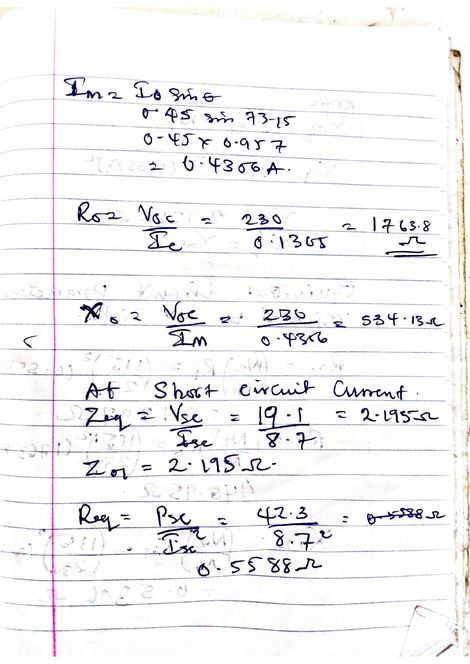 Im = Io Sin θ
0.45 sin 73.15
0.45 x 0.957
= 0.4306 A.
Ro = Voc/Ie = 230/0.1305 = 1763.8 Ω
Xo = Voc/Im = 230/0.4306 = 534.13 Ω
At Short circuit Current.
Zeq = Vsc/Isc = 19.1/8.7 = 2.195 Ω
Z01 = 2.195 Ω.
Req = Psc/Isc² = 42.3/8.7² = 0.5588 Ω
0.5588 Ω